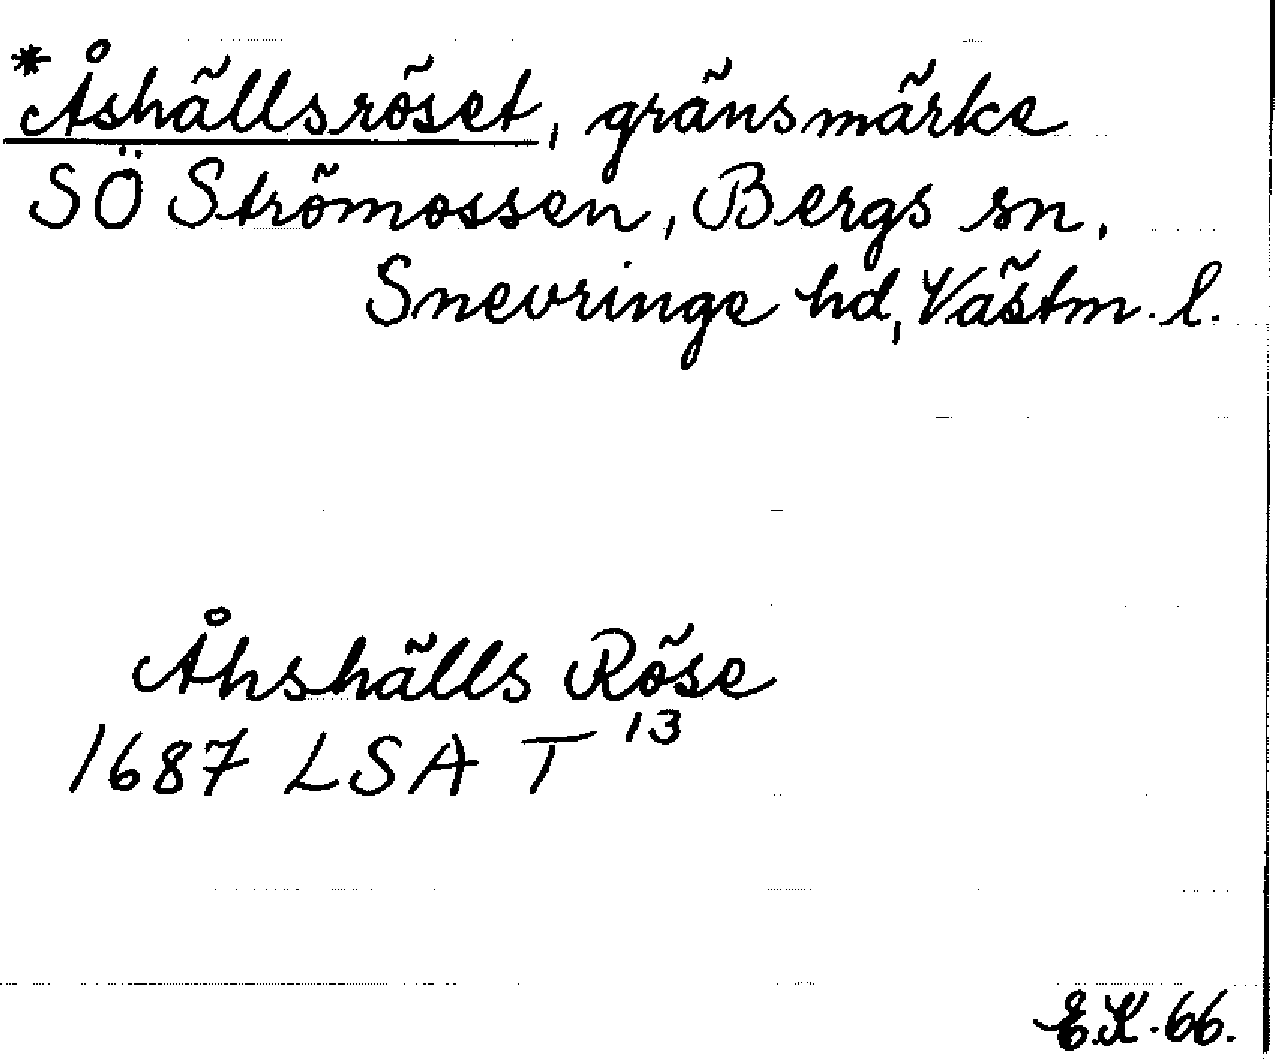 *Åshällsröset, gränsmärke
SÖ Strömossen, Bergs sn,
Snevringe hd, Västm. l.
Åhshälls Röse
1687 LSA T 13
E.K. 66.